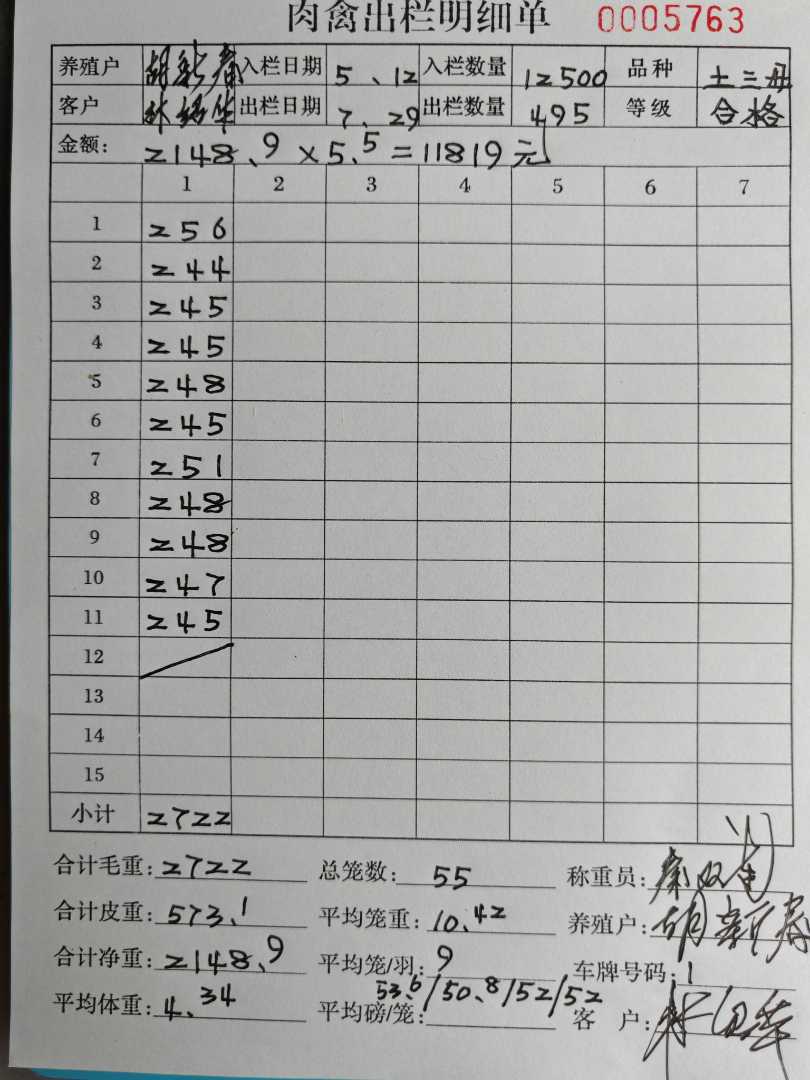 肉禽出栏明细单 0005763
养殖户 胡新春 入栏日期 5、12 入栏数量 12500 品种 土三母
客户 林绍华 出栏日期 7、29 出栏数量 495 等级 合格
金额: 2148.9×5.5=11819元
1 2 3 4 5 6 7
1 256
2 244
3 245
4 245
5 248
6 245
7 251
8 248
9 248
10 247
11 245
12
13
14
15
小计 2722
合计毛重: 2722 总笼数: 55 称重员:
合计皮重: 573.1 平均笼重: 10.42 养殖户: 胡新春
合计净重: 2148.9 平均笼/羽: 9 车牌号码: 1
平均体重: 4.34 平均磅/笼: 53.6/50.8/52/52 客户: